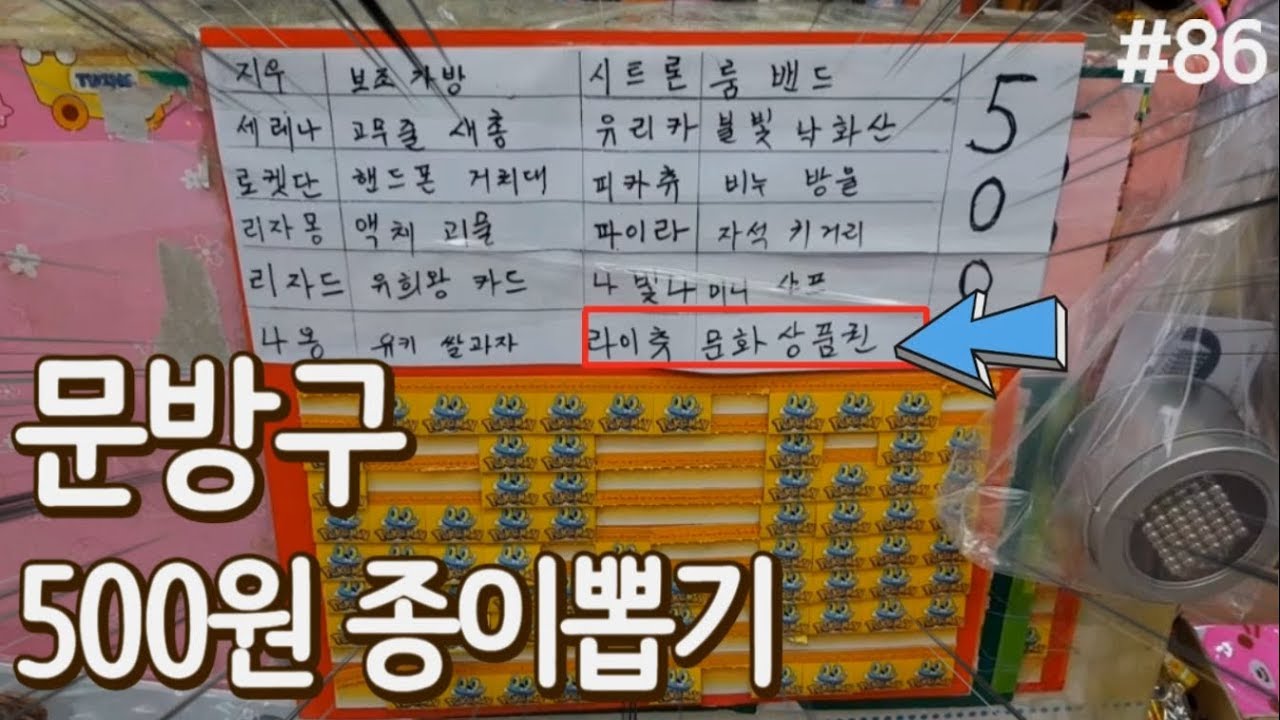 #86
지우 보조가방 시트론 룸 밴드
세레나 고무줄 새총 유리카 불빛 낙화산
로켓단 핸드폰 거치대 피카츄 비누 방울
리자몽 액체 괴물 파이라 자석 키거리
리자드 유희왕 카드 나빛나 미니 샤프
나옹 유키 쌀과자 라이츗 문화상품권
500
문방구
500원 종이뽑기